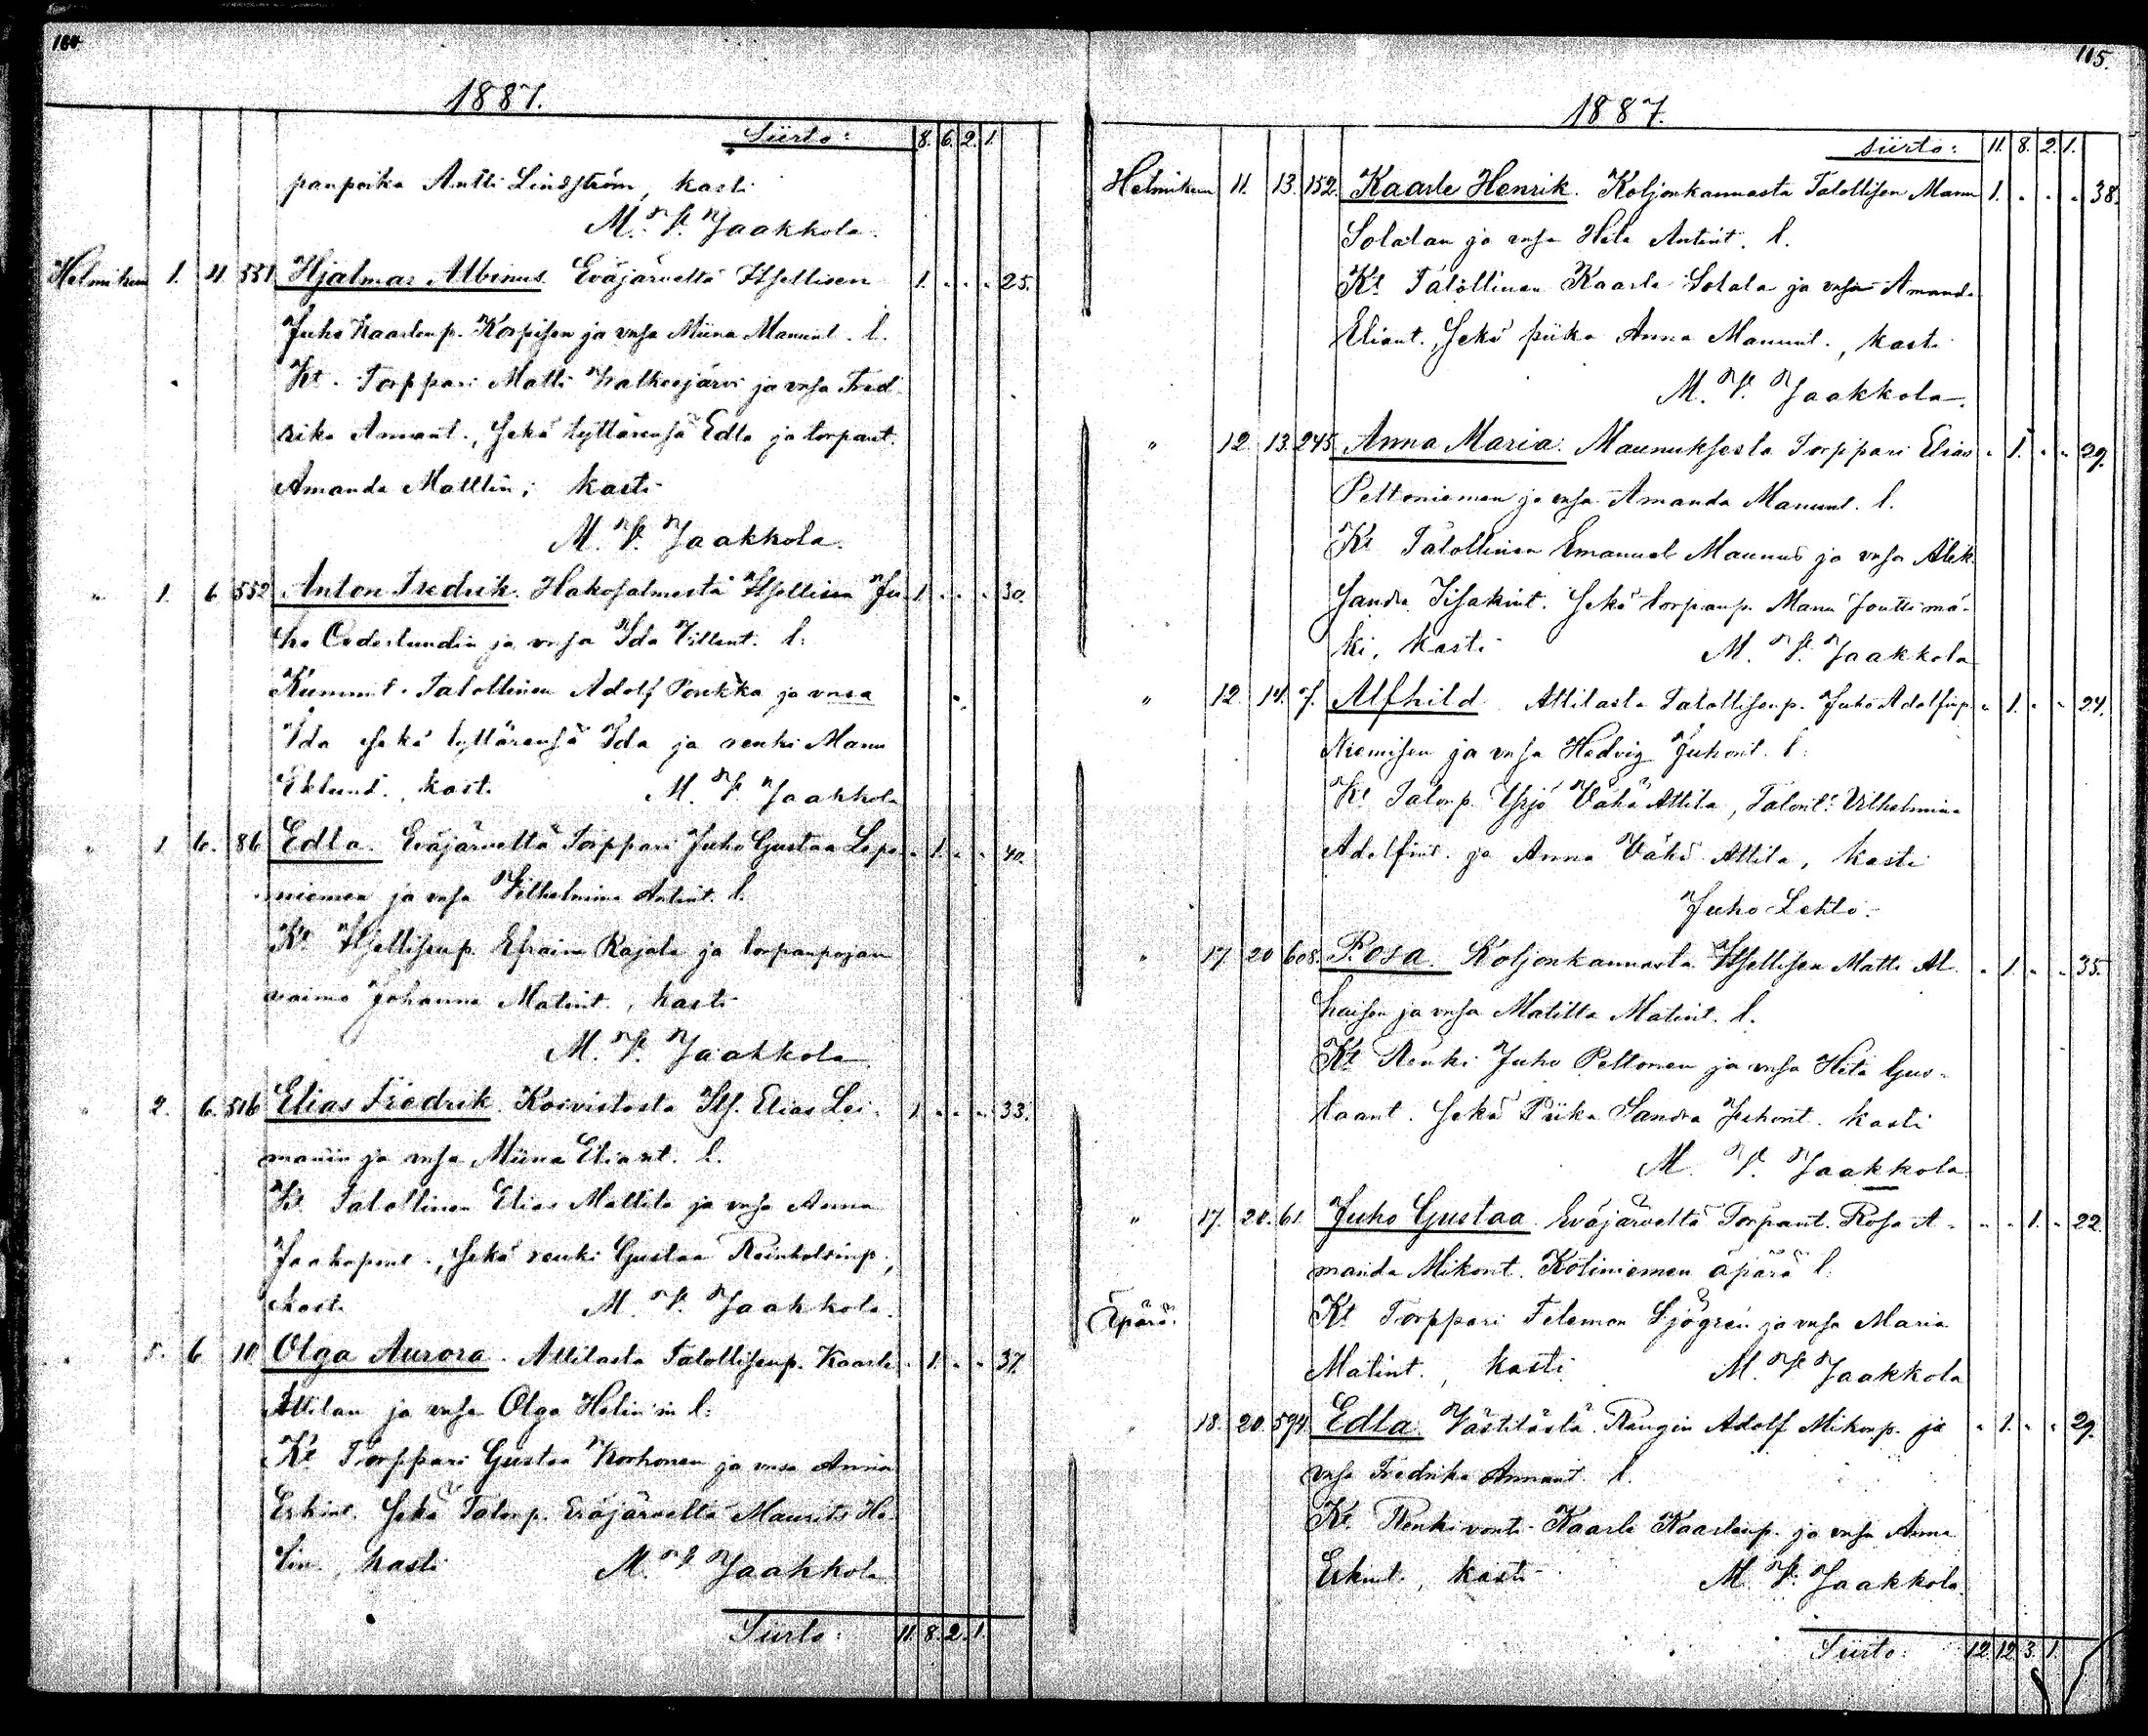 1887.
Siirto: 8. 6. 2. 1.
panpoika Antti Lindström, kasti
M. V. Jaakkola.
Helmikuun 1. 4. 551 Hjalmar Albinus. Eväjärveltä Itsellisen 1. " " " 25.
Juho Kaarlenp. Korpisen ja vmsa Miina Manunt. l.
Kt. Torppari Matti Kalkeejärvi ja vmsa Fred
rika Amant., sekä tyttärensä Edla ja torpant.
Amanda Mattlin; kasti
M. V. Jaakkola.
" 1. 6 552 Anton Fredrik. Hakosalmesta Itsellisen Ju 1. " " " 30.
ho Cederlundin ja vmsa Ida Villent. l.
Kummit. Talollinen Adolf Penkka ja vmsa
Ida sekä tyttärensä Ida ja renki Manu
Eklund., kasti M. V. Jaakkola
" 1. 6. 86 Edla. Eväjärveltä Torppari Juho Gustaa Lepo " 1. " " 40.
niemen ja vmsa Vilhelmina Antint. l.
Kt. Itsellisenp. Efraim Rajala ja torpanpojan
vaimo Johanna Matint., kasti
M. V. Jaakkola
" 2. 6. 516 Elias Fredrik. Koivistosta Its. Elias Lei 1. " " " 33.
manin ja vmsa Miina Eliant. l.
Kt. Talollinen Elias Mattila ja vmsa Anna
Jaakopint., sekä renki Gustaa Reinholdinp.,
kasti M. V. Jaakkola.
" 5. 6 10 Olga Aurora. Attilasta Talollisenp. Kaarle " 1. " " 37.
Attilan ja vmsa Olga Helin'in l.
Kt. Torppari Gustaa Korhonen ja vmsa Anna
Erkint. sekä Talonp. Eräjärveltä Maurits He
lin, kasti M. V. Jaakkola
Siirto: 11. 8. 2. 1.
115.
1887.
Siirto: 11. 8. 2. 1.
Helmikuun 11. 13. 152. Kaarle Henrik. Koljonkannasta Talollisen Manu 1. " " " 38.
Solalan ja vmsa Heta Antint. l.
Kt. Talollinen Kaarle Solala ja vmsa Amanda
Eliant., sekä piika Anna Manunt., kasti
M. V. Jaakkola.
" 12. 13. 245 Anna Maria. Maunuksesta Torppari Elias " 1. " " 29.
Peltoniemen ja vmsa Amanda Manunt. l.
Kt. Talollinen Emanuel Maunus ja vmsa Alek
sandra Iisakint. sekä torpanp. Manu Jouttimä
ki, kasti M. V. Jaakkola
" 12. 14. 7. Alfhild. Attilasta Talollisenp. Juho Adolfinp. " 1. " " 24.
Niemisen ja vmsa Hedvig Juhont. l.
Kt. Talonp. Yrjö Vähä Attila, Talont. Vilhelmina
Adolfint. ja Anna Vähä Attila, kasti
Juho Lehto.
" 17. 20 608. Rosa. Koljonkannasta Itsellisen Matti Al " 1. " " 35.
haisen ja vmsa Matilta Matint. l.
Kt. Renki Juho Peltonen ja vmsa Heta Gus
taant. sekä Piika Sandra Juhont. kasti
M. V. Jaakkola.
" 17. 20. 61. Juho Gustaa. Eväjärveltä Torpant. Rosa A " " 1. " 22.
manda Mikont. Kotiniemen äpärä l.
Äpärä. Kt. Torppari Felemon Sjögren ja vmsa Maria
Matint., kasti M. V. Jaakkola
" 18. 20. 594 Edla. Västilästä Rengin Adolf Mikonp. ja " 1. " " 29.
vmsa Fredrika Amant. l.
Kt. Renkivouti Kaarle Kaarlenp. ja vmsa Anna
Erkint., kasti M. V. Jaakkola.
Siirto: 12. 12. 3. 1.